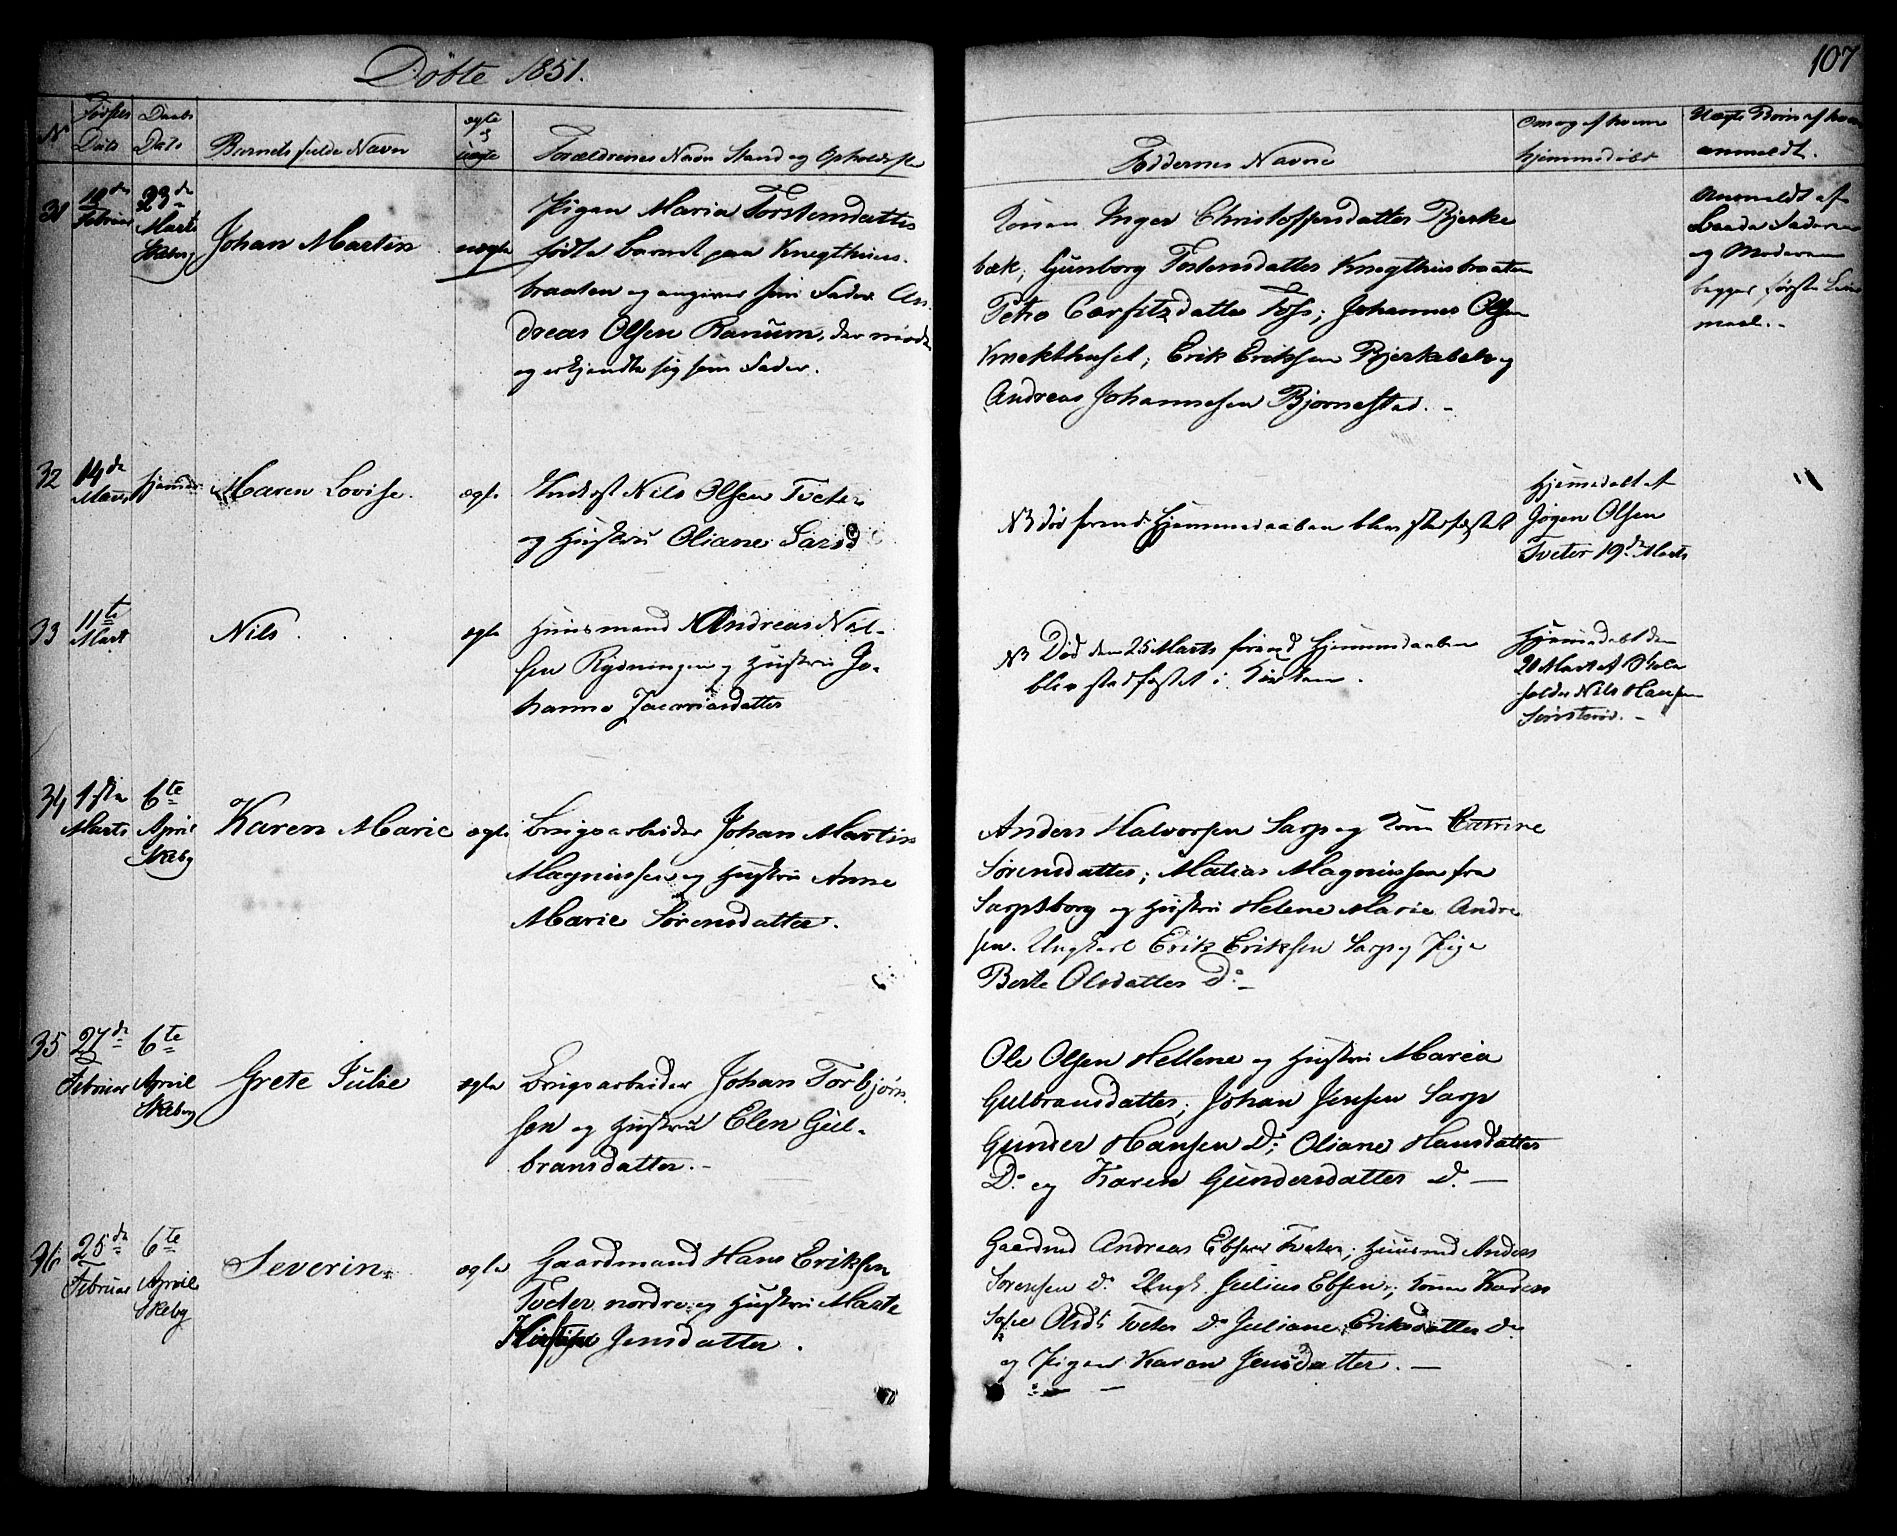 Döbte 1851.
107
No
Fødsels Dato
Daabs Dato
Barnets fulde Navn
ægte og uægte
Forældrenes Navn Stand og Opholdsst
Faddernes Navne
Om og af hvem hjemmedøbt
Uægte Børn af hvem anmeldt.
31
18de Februar
23de Marts Skeby
Johan Martin
uægte
Pigen Maria Torstensdatter
fødte Barnet paa Knegthuus-
braaten og angiver som Fader An-
dreas Olsen Ranum, der mødte
og erkjendte sig som Fader.
Konen Inger Christophersdatter Bjerke
bæk; Gunborg Tostensdatter Knegthusbraaten
Johannes Olsen
Knekthuset; Erik Eriksen Bjerkebek og
Andreas Johannesen Bjornestad. -
Anmeldt af
Baade Faderen
og Moderen
begges første Leier
maal. -
32
14de Marts
hjemme
Maren Lovise.
ægte
Nils Olsen Tveter
og Hustru Oliane Larsd
NB død førend Hjemmedaaben blev stadfæstet
Hjemmedøbt af
Jørgen Olsen
Tveter 19de Marts
33
11te Mart
Nils.
ægte
Huusmand Andreas Niel-
sen Rydningen og Hustru Jo-
hanne Zacariasdatter
NB Død den 25 Marts førend Hjemmedaaben
blev stadfæstet i Kirken.
Hjemmedøbt den
20 Mart af Skole
holder Nils Hansen
34
1ste Marts
6te April Skeby
Karen Marie
ægte
Brugsarbeider Johan Martin
Magnussen og Hustru Anne
Marie Sørensdatter.
Anders Halvorsen Sarp og Kone Catrine
Sørensdatter; Matias Magnussen fra
Sarpsborg og Hustru Helene Marie Andre
sen. Ungkarl Erik Eriksen Sarp og Pige
Berte Olsdatter Do -
35
27de Februar
6te April Skeby
Grete Julie
ægte
Brugsarbeider Johan Torbjørn
sen og Hustru Elen Gul-
bransdatter. -
Ole Olsen Hellene og Hustru Maria
Gulbransdatter; Johan Jensen Sarp
Gunder Hansen Do; Oliane Hansdatter
Do og Karen Gundersdatter D. -
36
25de Februar
6te April Skeby
Severin
ægte
Gaardmand Hans Eriksen
Tveter nordre og Hustru Marte
Jensdatter.
Gaardmd Andreas Ebsen Tveter; Huusmd Anders
Sørensen Do Ungk. Julius Ebsen; Konen Karen
Sofie Olsdt Tveter Do Juliane Eriksdatter Do
og Pigen Karen Jensdatter. -